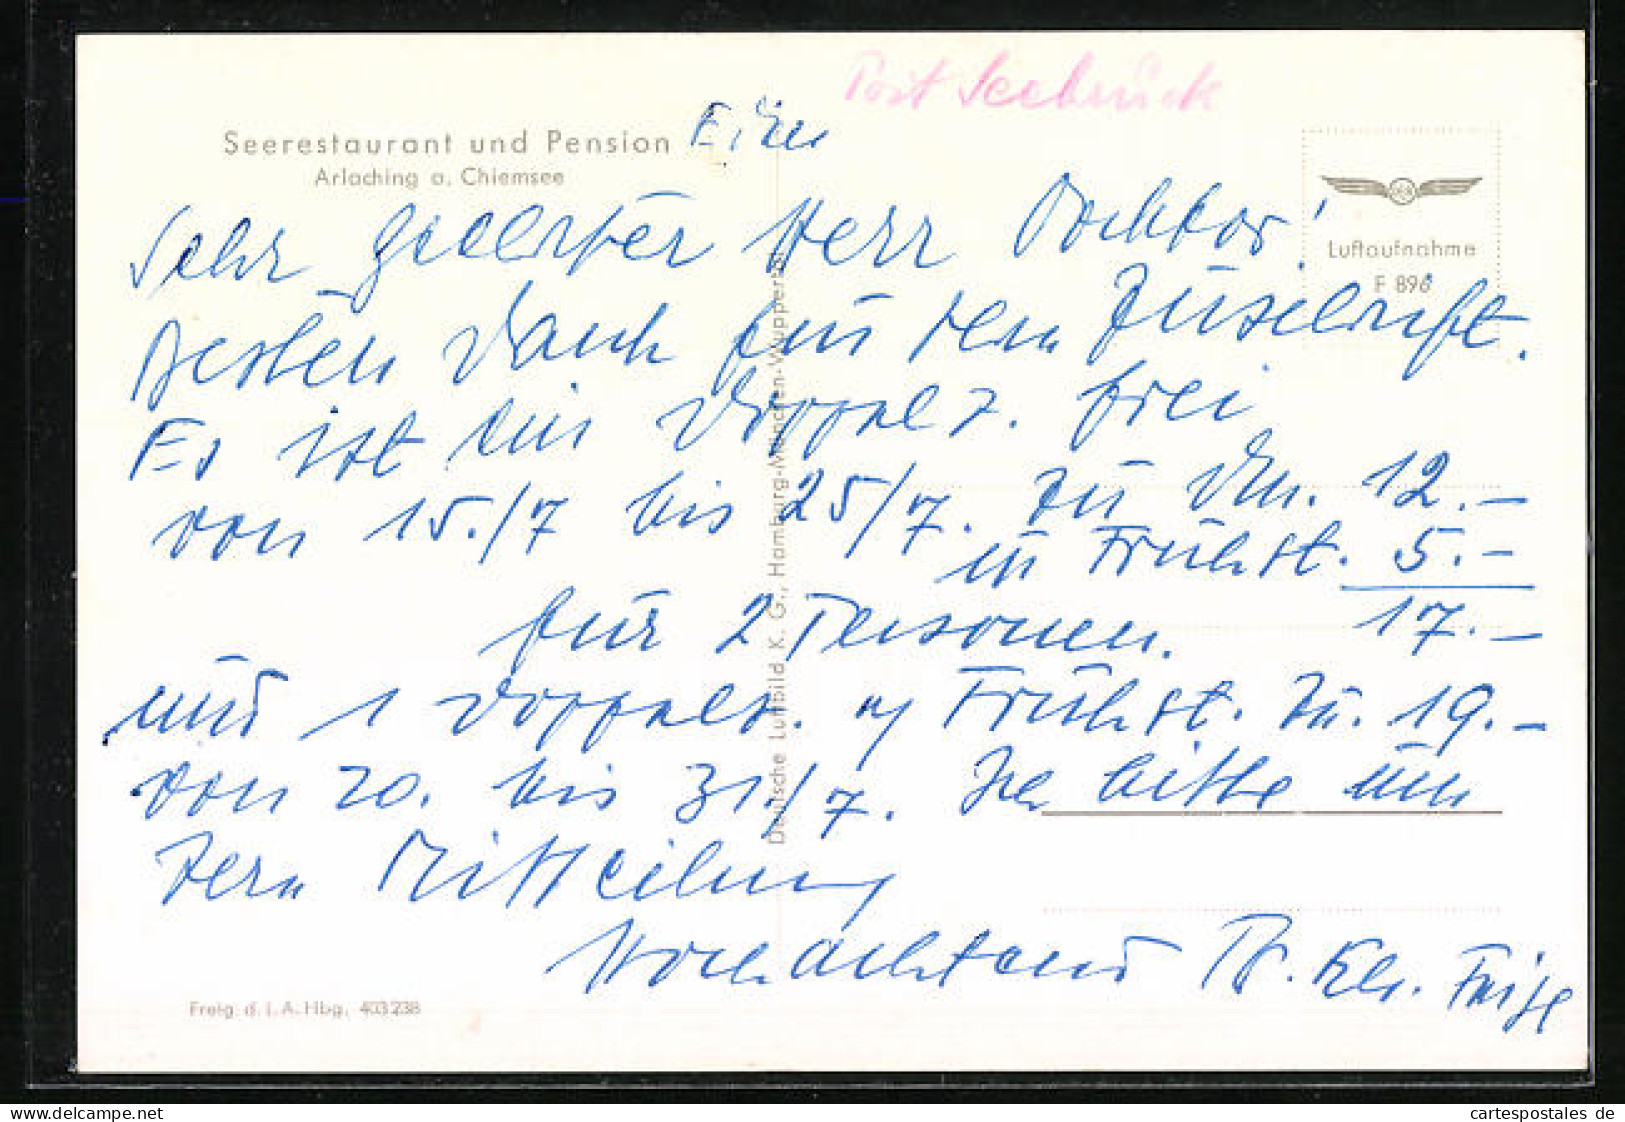 Post Seebruck
Seerestaurant und Pension
Arlaching a. Chiemsee
Luftaufnahme
F 896
Sehr geehrter Herr Docktor!
Besten Dank für Zuschrift.
Es ist ein Doppelz. frei
von 15./7 bis 25/7. zu DM. 12.-
u Frühst. 5.-
für 2 Personen. 17.-
und 1 Doppelz. Frühst. zu. 19.-
von 20. bis 31./7. Ich bitte um
Mitteilung
Hochachtend
Deutsche Luftbild K. G., Hamburg-München-Wuppertal
Freig. d. L. A. Hbg. 403238
cartespostales de